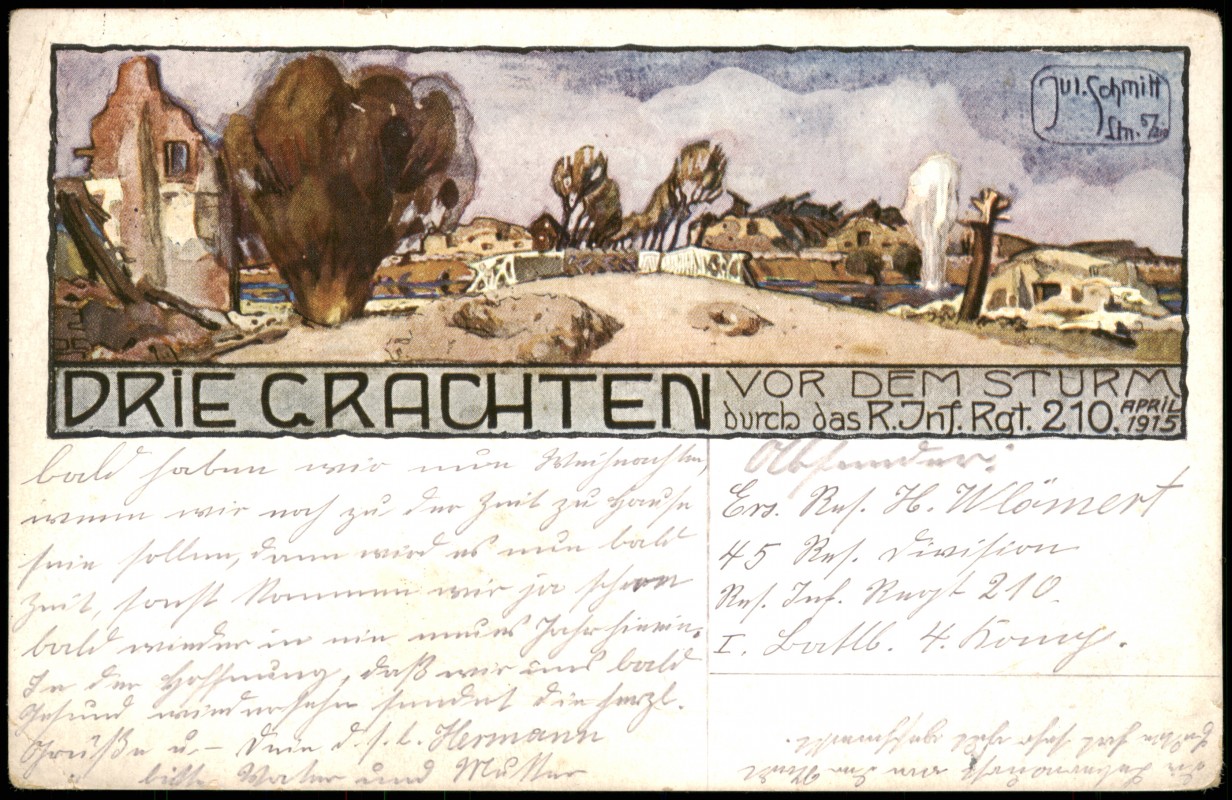 Jul. Schmitt
Ltn. 5/210
DRIE GRACHTEN
VOR DEM STURM
durch das R. Inf. Rgt. 210. APRIL 1915
bald haben wir nun Weihnachten,
wenn wir noch zu der Zeit zu Hause
sein sollen, dann wird es nun bald
Zeit, sonst kommen wir ja schon
bald wieder in ein neues Jahr hinein.
In der Hoffnung, daß wir uns bald
Gesund wiedersehn sendet die herzl.
Grüße u. – Dein d. s. l. Hermann
bitte Vater und Mutter
Absender:
Ers. Res. H. Wlömert
45 Res. Division
Res. Inf. Regt 210.
I. Batlb. 4. Komp.
hat sehr gut geschmeckt.